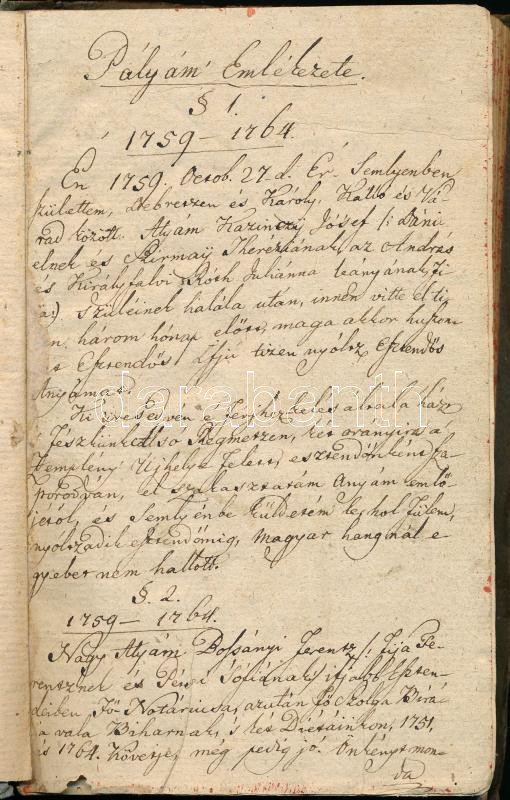 Pályám' Emlékezete.
§ 1.
1759 – 1764.
Én 1759. Octob. 27 d. Ér-Semlyenben
születtem, Debretzen és Károly, Kalló és Vá-
rad között. Atyám Kazinczy Jósef /: Dáni-
elnek és Szirmay Theréziának, az András
és Királyfalvi Róth Juliánna leanyának, fi-
ja :) Szüleinek halála után, innen vitte el ti-
zen három hónap előtt, maga akkor huszon-
Esztendős Ifjú tizen nyólcz Esztendős
Anyámat.
Ki üresedvén a
fészkünk Alsó Regmetzen, két órányira a'
Zemplény Ujhelye felett, esztendőnként sza-
porodván, el szakasztatám Anyám emlő-
jétől, és Semlyénbe küldetém le, hol fülem,
nyólczadik esztendőmig, Magyar hangnál e-
gyebet nem hallott.
§. 2.
1759 – 1764.
Nagy Atyám Bossányi Ferentz /: Fija Fe-
rentznek és Pécsi Sófiának :/ ifjabb Eszten-
deiben Fő-Notáriusa, azután Fő Szolga Birá-
ja vala Biharnak, 's két Diétáinkon, 1751,
és 1764. Követje, még pedig jó. Önként mon-
da
darabanth